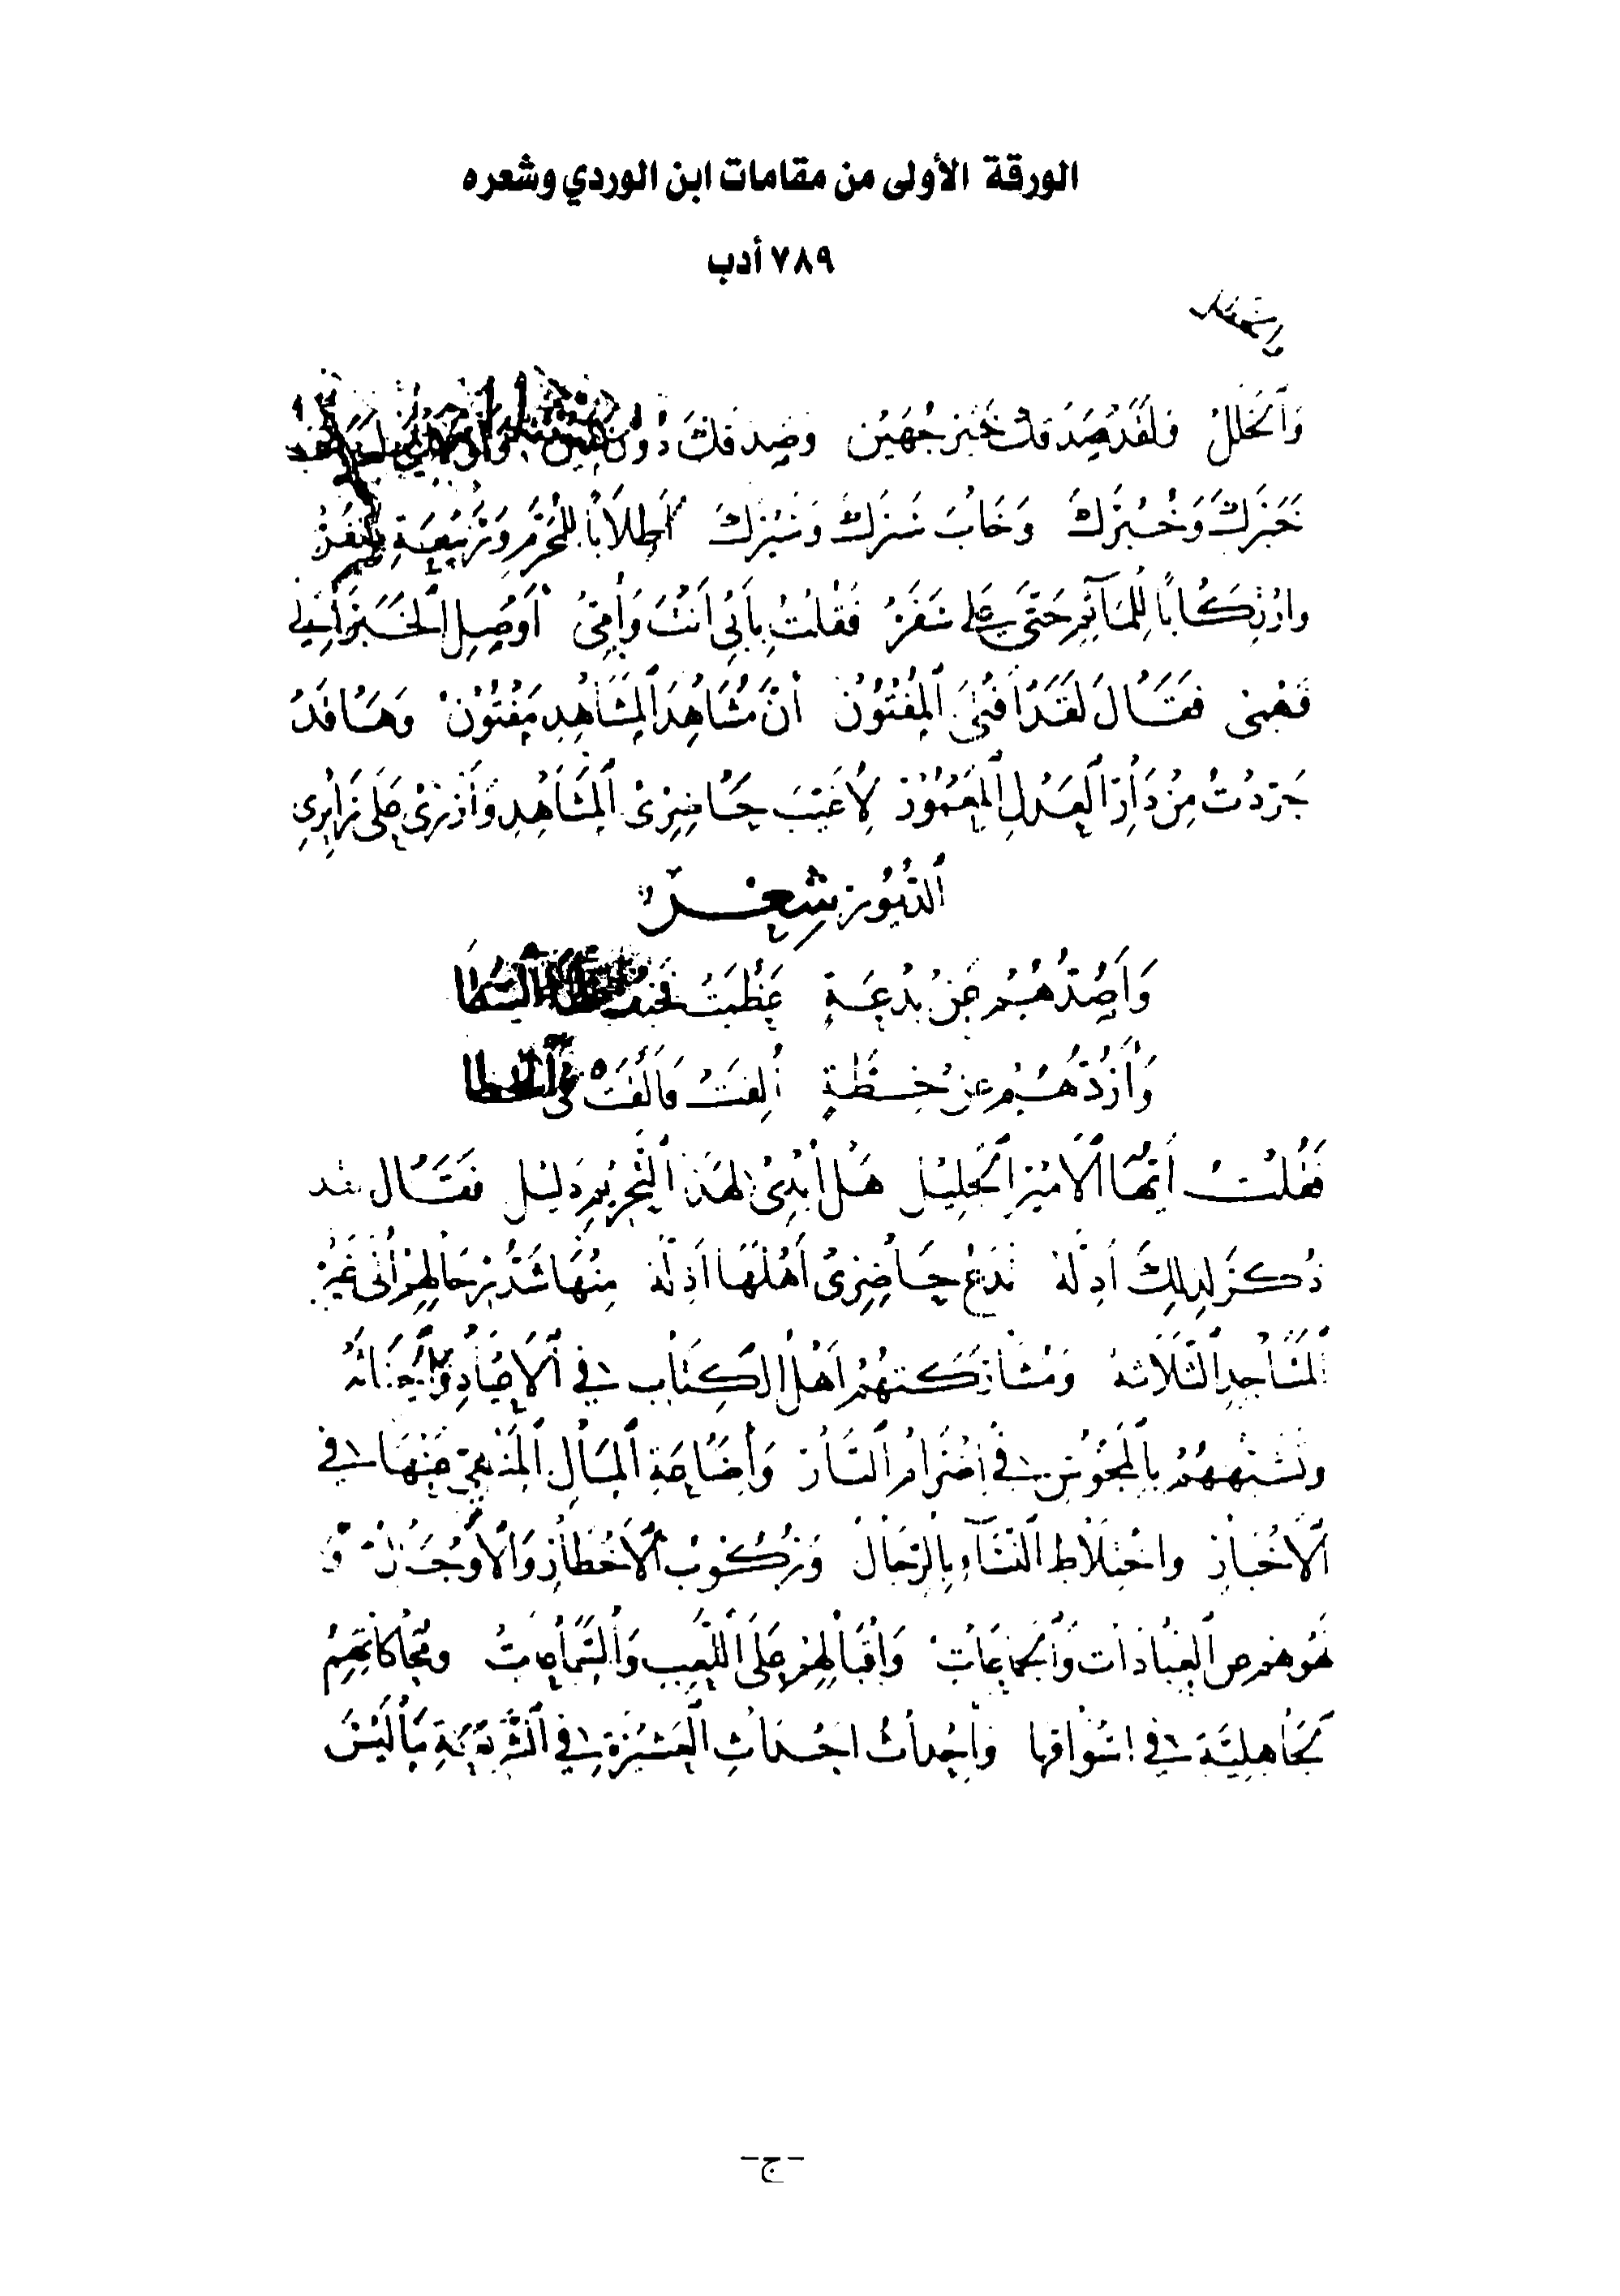 الورقة الأولى من مقامات ابن الوردي وشعره
٧٨٩ أدب
وَالخَلَلُ فلقد صَدَقَك خَبَر جُهَيْن وصِدقك دُون
خَبَرَكَ وَخُبْرَكَ وَخَابَ سَرك وَسَيْرك اطلابًا للمُحَرَّم وَتَرْبيعَة
وارْتِكَابًا لِلمَآثِم حَتَّى عَلى سَفَرْ فَقُلْتُ بِأَبِي أَنْتَ وَأُمِّي أَوصِلِ الخَبَر إلى
فَهْمِي فَقَالَ لَقَدْ أَفْتَى المُفْتُونْ أَنَّ مُشَاهِدَ المَشَاهِدِ مَفْتُونْ وَهَا قَدْ
جَرّدْتُ مِنْ دَارِ العَدلِ المَعْمُورْ لأَعيبَ حَاضِرِي المَشَاهِدِ وَأُزْرِي عَلَى زَائِرِي
الدُّيُورْ شِعْر
وَأَصُدُّهُمْ عَنْ بِدْعَةٍ عَظُمَتْ
وَأَرُدُّهُمْ عن خِطَّةٍ أُلِفَتْ فَأَلْفَتْ فِي الخطا
فَقُلْتُ أَيُّهَا الأَمِيْرُ الجَلِيْل هَلْ أُبْدِيَ لهذا التَّحْرِيمِ دَلِيْل فَقَال قد
ذُكرَ لِذلِكَ أَدِلَّة تَدَعُ حَاضِرِي أَهْلِهَا أَذِلَّة مِنْهَا شَدُّ رِحَالِهِمْ إلى غَيْرِ
المَسَاجِدِ الثَّلَاثَة وَمُشَارَكَتهُمْ أَهْلَ الكِتَاب في الأَعْيَادِ
وَتَشَبُّههُمْ بِالمَجُوس في اضْرَامِ النَّار وَإضَاعَةِ المَالِ المَنْهِيِّ عَنْهَا في
الأَخْبَار واختِلَاط النِّسَآءِ بِالرِّجَال وَرُكُوب الأَخْطَارِ وَالأَوْجَال وَ
لَهْوهم عن العِبَادَات وَالجَمَاعَاتْ وَإقْبَالِهِمْ عَلَى اللَّعِبِ وَالسَّمَاعَاتْ ومُحَاكاتهِمِ
الجَاهِلِيَّة في اسْوَاقها وَإحْدَاث احْدَاثِ العَشِيْرَةِ في الشَّرِيْعَةِ مَا لَيْسَ
-ج-